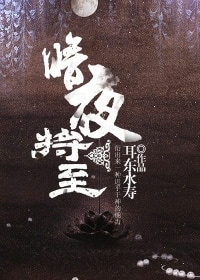 暗夜将至
耳东水寿
◎作品